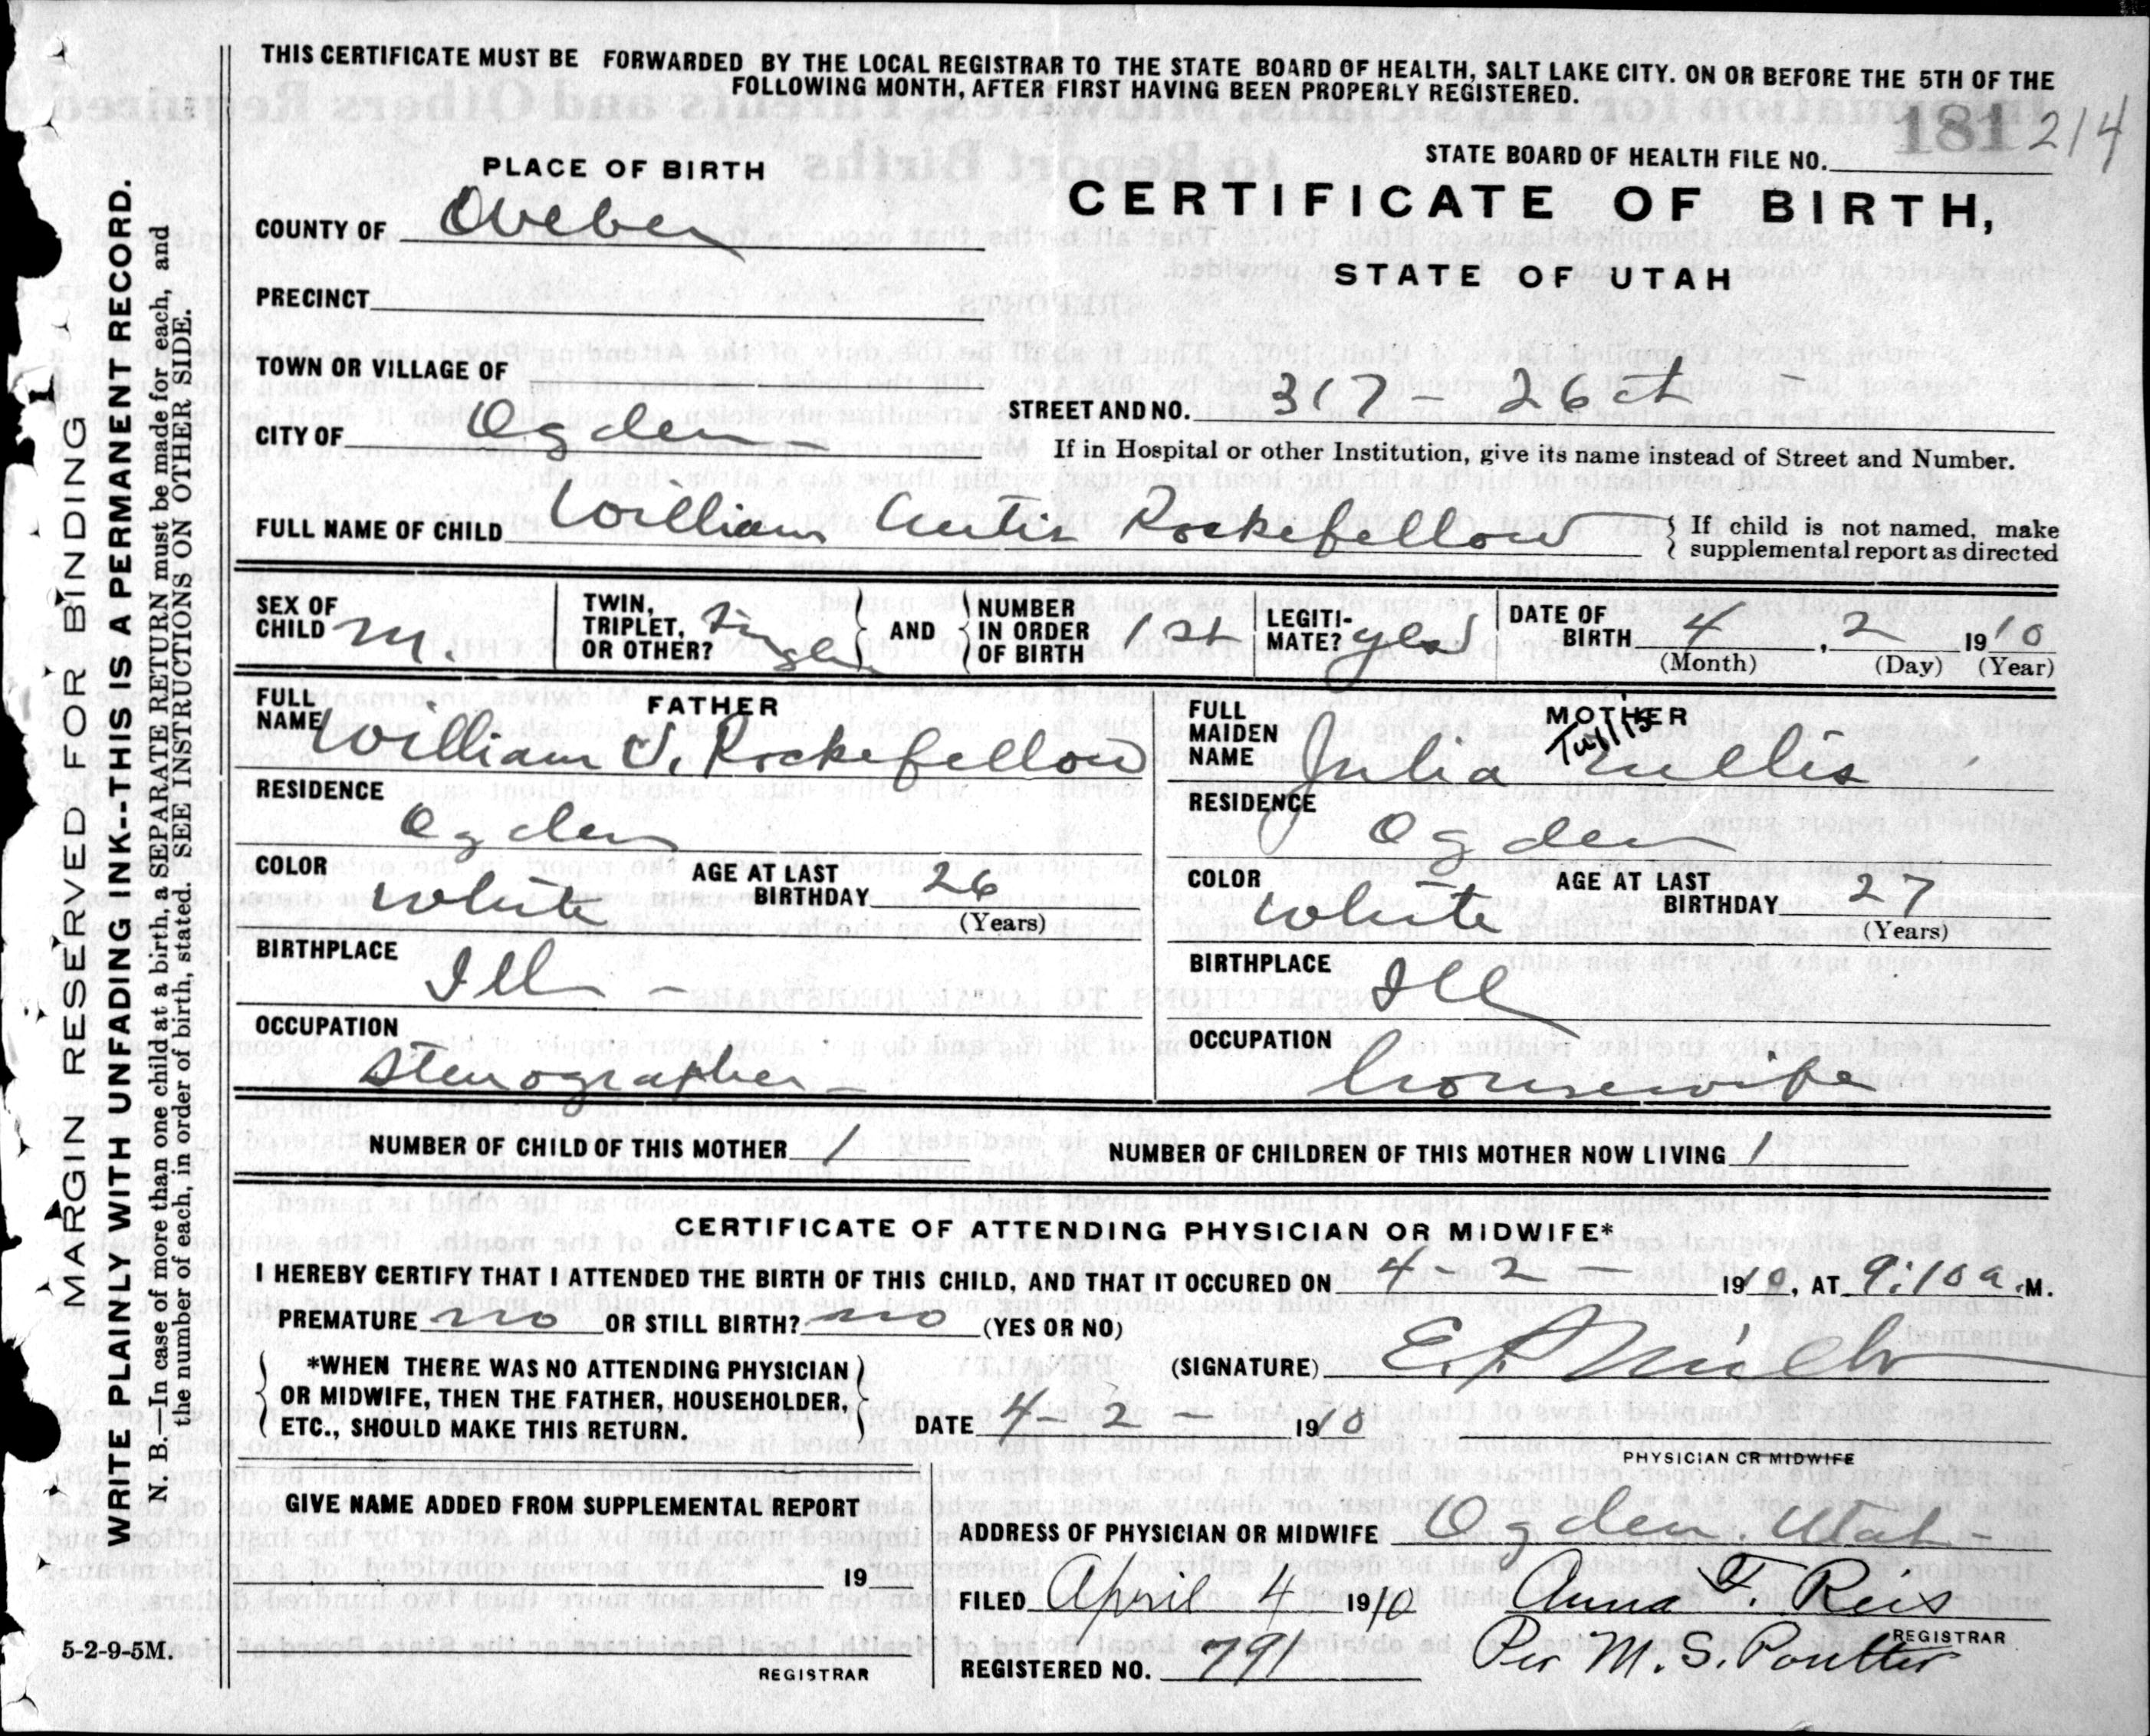 THIS CERTIFICATE MUST BE FORWARDED BY THE LOCAL REGISTRAR TO THE STATE BOARD OF HEALTH, SALT LAKE CITY. ON OR BEFORE THE 5TH OF THE
FOLLOWING MONTH, AFTER FIRST HAVING BEEN PROPERLY REGISTERED.
181 214
STATE BOARD OF HEALTH FILE NO.
PLACE OF BIRTH
CERTIFICATE OF BIRTH,
STATE OF UTAH
COUNTY OF Weber
PRECINCT
TOWN OR VILLAGE OF
CITY OF Ogden
STREET AND NO. 317 - 26
If in Hospital or other Institution, give its name instead of Street and Number.
FULL NAME OF CHILD William Curtis Rockefellow
{ If child is not named, make
supplemental report as directed
SEX OF CHILD M.
TWIN, TRIPLET, OR OTHER? Single
AND
NUMBER IN ORDER OF BIRTH 1st
LEGITIMATE? yes
DATE OF BIRTH 4, 2 1910
(Month) (Day) (Year)
FATHER
FULL NAME William J. Rockefellow
RESIDENCE
Ogden
COLOR white
AGE AT LAST BIRTHDAY 26
(Years)
BIRTHPLACE
Ill -
OCCUPATION
Stenographer -
MOTHER
Tullis
FULL MAIDEN NAME Julia Tullis
RESIDENCE
Ogden
COLOR white
AGE AT LAST BIRTHDAY 27
(Years)
BIRTHPLACE
Ill
OCCUPATION
housewife
NUMBER OF CHILD OF THIS MOTHER 1
NUMBER OF CHILDREN OF THIS MOTHER NOW LIVING 1
CERTIFICATE OF ATTENDING PHYSICIAN OR MIDWIFE*
I HEREBY CERTIFY THAT I ATTENDED THE BIRTH OF THIS CHILD, AND THAT IT OCCURED ON 4 2 - 1910, AT 9:10 a.M.
PREMATURE no OR STILL BIRTH? no (YES OR NO)
*WHEN THERE WAS NO ATTENDING PHYSICIAN
OR MIDWIFE, THEN THE FATHER, HOUSEHOLDER,
ETC., SHOULD MAKE THIS RETURN.
(SIGNATURE)
DATE 4-2- 1910
PHYSICIAN OR MIDWIFE
GIVE NAME ADDED FROM SUPPLEMENTAL REPORT
19
REGISTRAR
ADDRESS OF PHYSICIAN OR MIDWIFE Ogden. Utah-
FILED April 4 1910
Anna F. Reis
REGISTRAR
REGISTERED NO. 791
Per M. S. Poulter
5-2-9-5M.
MARGIN RESERVED FOR BINDING
WRITE PLAINLY WITH UNFADING INK--THIS IS A PERMANENT RECORD.
N. B.—In case of more than one child at a birth, a SEPARATE RETURN must be made for each, and
the number of each, in order of birth, stated. SEE INSTRUCTIONS ON OTHER SIDE.